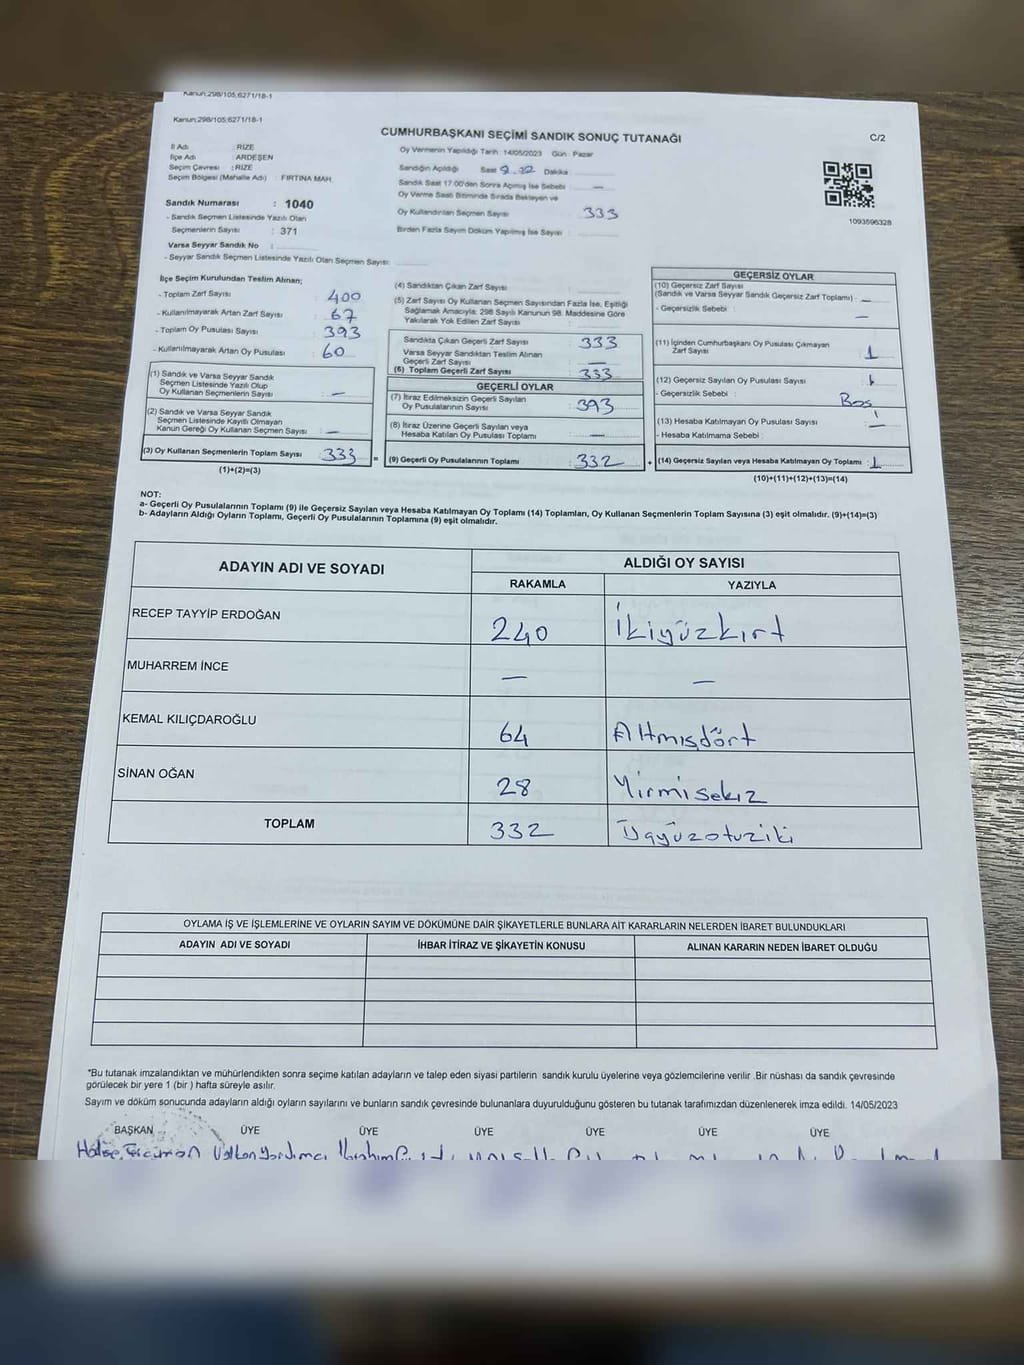 Kanun;298/105;6271/18-1
Kanun;298/105;6271/18-1
CUMHURBAŞKANI SEÇİMİ SANDIK SONUÇ TUTANAĞI
C/2
İl Adı : RİZE
İlçe Adı : ARDEŞEN
Seçim Çevresi : RİZE
Seçim Bölgesi (Mahalle Adı) : FIRTINA MAH.
Sandık Numarası : 1040
- Sandık Seçmen Listesinde Yazılı Olan
Seçmenlerin Sayısı : 371
Varsa Seyyar Sandık No :
- Seyyar Sandık Seçmen Listesinde Yazılı Olan Seçmen Sayısı:
Oy Vermenin Yapıldığı Tarih : 14/05/2023 Gün : Pazar
Sandığın Açıldığı Saat Dakika
Sandık Saat 17:00'den Sonra Açımış İse Sebebi : —
Oy Verme Saati Bitiminde Sırada Bekleyen ve
Oy Kullandırılan Seçmen Sayısı : 333
Birden Fazla Sayım Döküm Yapılmış İse Sayısı :
1093596328
İlçe Seçim Kurulundan Teslim Alınan;
- Toplam Zarf Sayısı : 400
- Kullanılmayarak Artan Zarf Sayısı : 67
- Toplam Oy Pusulası Sayısı : 393
- Kullanılmayarak Artan Oy Pusulası : 60
(1) Sandık ve Varsa Seyyar Sandık
Seçmen Listesinde Yazılı Olup
Oy Kullanan Seçmenlerin Sayısı : —
(2) Sandık ve Varsa Seyyar Sandık
Seçmen Listesinde Kayıtlı Olmayan
Kanun Gereği Oy Kullanan Seçmen Sayısı : —
(3) Oy Kullanan Seçmenlerin Toplam Sayısı : 333 =
(1)+(2)=(3)
(4) Sandıktan Çıkan Zarf Sayısı :
(5) Zarf Sayısı Oy Kullanan Seçmen Sayısından Fazla İse, Eşitliği
Sağlamak Amacıyla; 298 Sayılı Kanunun 98. Maddesine Göre
Yakılarak Yok Edilen Zarf Sayısı :
Sandıkta Çıkan Geçerli Zarf Sayısı : 333
Varsa Seyyar Sandıktan Teslim Alınan
Geçerli Zarf Sayısı : —
(6) Toplam Geçerli Zarf Sayısı : 333
GEÇERLİ OYLAR
(7) İtiraz Edilmeksizin Geçerli Sayılan
Oy Pusulalarının Sayısı : 393
(8) İtiraz Üzerine Geçerli Sayılan veya
Hesaba Katılan Oy Pusulası Toplamı : —
(9) Geçerli Oy Pusulalarının Toplamı : 332 +
GEÇERSİZ OYLAR
(10) Geçersiz Zarf Sayısı
(Sandık ve Varsa Seyyar Sandık Geçersiz Zarf Toplamı) : —
- Geçersizlik Sebebi : —
(11) İçinden Cumhurbaşkanı Oy Pusulası Çıkmayan
Zarf Sayısı : 1
(12) Geçersiz Sayılan Oy Pusulası Sayısı :
- Geçersizlik Sebebi : Boş
(13) Hesaba Katılmayan Oy Pusulası Sayısı : —
- Hesaba Katılmama Sebebi :
(14) Geçersiz Sayılan veya Hesaba Katılmayan Oy Toplamı : 1
(10)+(11)+(12)+(13)=(14)
NOT:
a- Geçerli Oy Pusulalarının Toplamı (9) ile Geçersiz Sayılan veya Hesaba Katılmayan Oy Toplamı (14) Toplamları, Oy Kullanan Seçmenlerin Toplam Sayısına (3) eşit olmalıdır. (9)+(14)=(3)
b- Adayların Aldığı Oyların Toplamı, Geçerli Oy Pusulalarının Toplamına (9) eşit olmalıdır.
ADAYIN ADI VE SOYADI
ALDIĞI OY SAYISI
RAKAMLA YAZIYLA
RECEP TAYYİP ERDOĞAN 240 İkiyüzkırt
MUHARREM İNCE — —
KEMAL KILIÇDAROĞLU 64 Altmışdört
SİNAN OĞAN 28 Yirmisekiz
TOPLAM 332 Üçyüzotuziki
OYLAMA İŞ VE İŞLEMLERİNE VE OYLARIN SAYIM VE DÖKÜMÜNE DAİR ŞİKAYETLERLE BUNLARA AİT KARARLARIN NELERDEN İBARET BULUNDUKLARI
ADAYIN ADI VE SOYADI İHBAR İTİRAZ VE ŞİKAYETİN KONUSU ALINAN KARARIN NEDEN İBARET OLDUĞU
*Bu tutanak imzalandıktan ve mühürlendikten sonra seçime katılan adayların ve talep eden siyasi partilerin sandık kurulu üyelerine veya gözlemcilerine verilir .Bir nüshası da sandık çevresinde
görülecek bir yere 1 (bir ) hafta süreyle asılır.
Sayım ve döküm sonucunda adayların aldığı oyların sayılarını ve bunların sandık çevresinde bulunanlara duyurulduğunu gösteren bu tutanak tarafımızdan düzenlenerek imza edildi. 14/05/2023
BAŞKAN ÜYE ÜYE ÜYE ÜYE ÜYE ÜYE